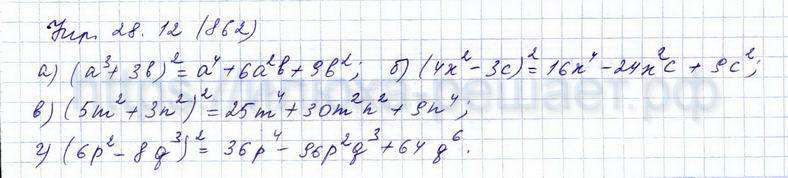 Упр. 28.12 (862)
а) (a³ + 3b)² = a⁴ + 6a²b + 9b²; б) (4x² - 3c)² = 16x⁴ - 24x²c + 9c²;
в) (5m² + 3n²)² = 25m⁴ + 30m²n² + 9n⁴;
г) (6p² - 8q³)² = 36p⁴ - 96p²q³ + 64q⁶.